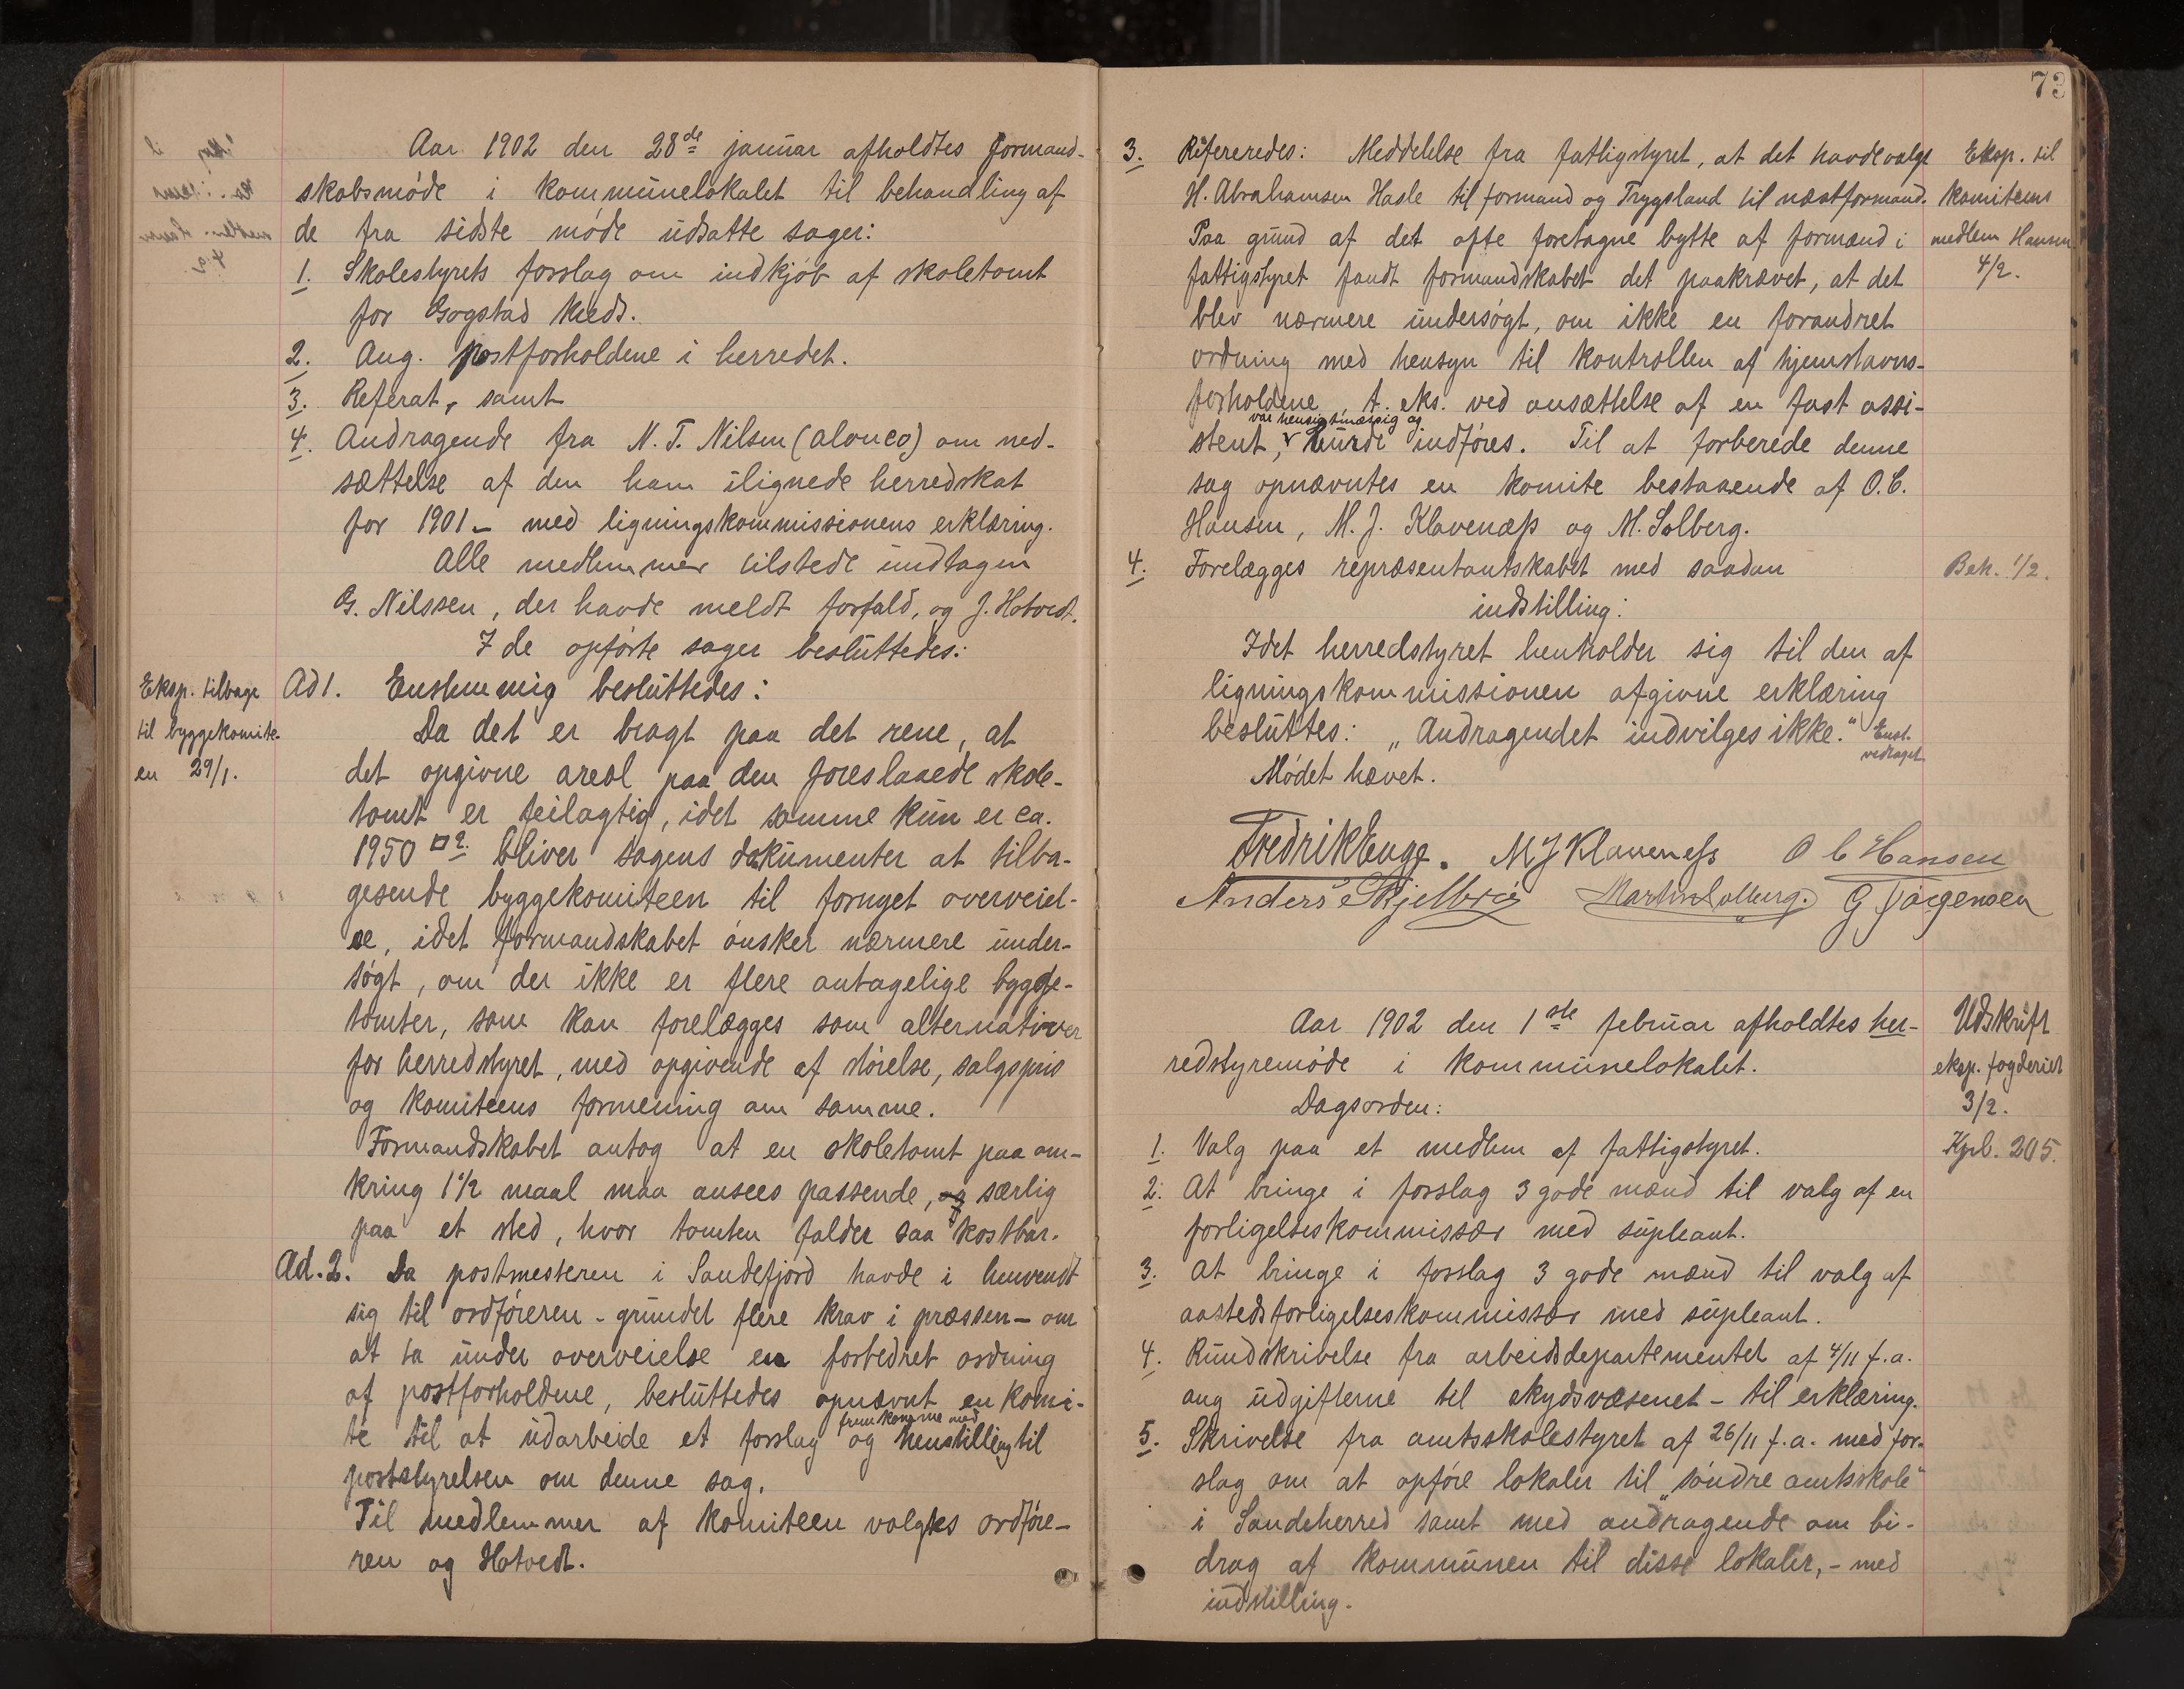 Aar 1902 den 28de januar afholdtes formand-
skabsmøde i kommunelokalet til behandling af
de fra sidste møde udsatte sager:
1. Skolestyrets forslag om indkjøb af skoletomt
for Gogstad kreds.
2. Ang. postforholdene i herredet.
3. Referat, samt
4. Andragende fra N. T. Nilsen (alonco) om ned-
sættelse af den ham ilignede herredskat
for 1901 – med ligningskommissionens erklæring.
Alle medlemmer tilstede undtagen
G. Nilssen, der havde meldt forfald, og J. Hotvedt.
I de opførte sager besluttedes:
Eksp. tilbage
til byggekomite-
en 29/1.
Ad 1. Enstemmig besluttedes:
Da det er bragt paa det rene, at
det opgivne areal paa den foreslaaede skole-
tomt er feilagtig, idet samme kun er ca.
1950 □ bliver sagens dokumenter at tilba-
gesende byggekomiteen til fornyet overveiel-
se, idet formandskabet ønsker nærmere under-
søgt, om der ikke er flere antagelige bygge-
tomter, som kan forelægges som alternativer
for herredstyret, med opgivende af størelse, salgspris
og komiteens formening om samme.
Formandskabet antog at en skoletomt paa om-
kring 1 1/2 maal maa ansees passende, og særlig
paa et sted, hvor tomten falder saa kostbar.
Ad. 2. Da postmesteren i Sandefjord havde i henvendt
sig til ordføreren – grundet flere krav i præssen – om
at ta under overveielse en forbedret ordning
af postforholdene, besluttedes opnævnt en komi-
te til at udarbeide et forslag og fremkomme med henstilling til
poststyrelsen om denne sag.
Til medlemmer af komiteen valgtes ordføre-
ren og Hotvedt.
73
3. Refereredes: Meddelelse fra fattigstyret, at det havde valgt
H. Abrahamsen Hasle til formand og Trygsland til næstformand.
Paa grund af det ofte foretagne bytte af formænd i
fattigstyret fandt formandskabet det paakrævet, at det
blev nærmere undersøgt, om ikke en forandret
ordning med hensyn til kontrollen af hjemstavns-
forholdene, t. eks. ved ansættelse af en fast assi-
stent, var hensigtmæssig og burde indføres. Til at forberede denne
sag opnævntes en komite bestaaende af O. C.
Hansen, M. J. Klavenæss og M. Solberg.
Eksp. til
komiteens
medlem Hansen
4/2.
4. Forelægges repræsentantskabet med saadan
indstilling:
Bek. 1/2.
Idet herredstyret henholder sig til den af
ligningskommissionen afgivne erklæring
besluttes: „Andragendet indvilges ikke.“ Enst.
vedtaget
Mødet hævet.
Fredrik Enge. M J Klaveness O C Hansen
Anders Skjelbrei Martin Solberg. G Jørgensen
Aar 1902 den 1ste februar afholdtes her-
redstyremøde i kommunelokalet.
Udskrift
eksp. fogderiet
3/2.
Kpl. 205.
Dagsorden:
1. Valg paa et medlem af fattigstyret.
2. At bringe i forslag 3 gode mænd til valg af en
forligelseskommissær med supleant.
3. At bringe i forslag 3 gode mænd til valg af
aastedsforligelseskommissær med supleant.
4. Rundskrivelse fra arbeidsdepartementet af 4/11 f. a.
ang udgifterne til skydsvæsenet – til erklæring.
5. Skrivelse fra amtsskolestyret af 26/11 f. a. med for-
slag om at opføre lokaler til „søndre amtsskole“
i Sandeherred samt med andragende om bi-
drag af kommunen til disse lokaler, – med
indstilling.